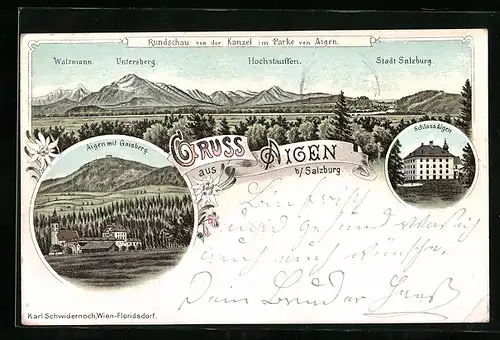 Rundschau von der Kanzel im Parke von Aigen.
Watzmann. Untersberg. Hochstauffen. Stadt Salzburg.
Aigen mit Gaisberg.
GRUSS
aus AIGEN
b/ Salzburg.
Schloss Aigen
und gesund was ich
auch euch wünsche.
Dein Bruder
Karl Schwidernoch, Wien-Floridsdorf.